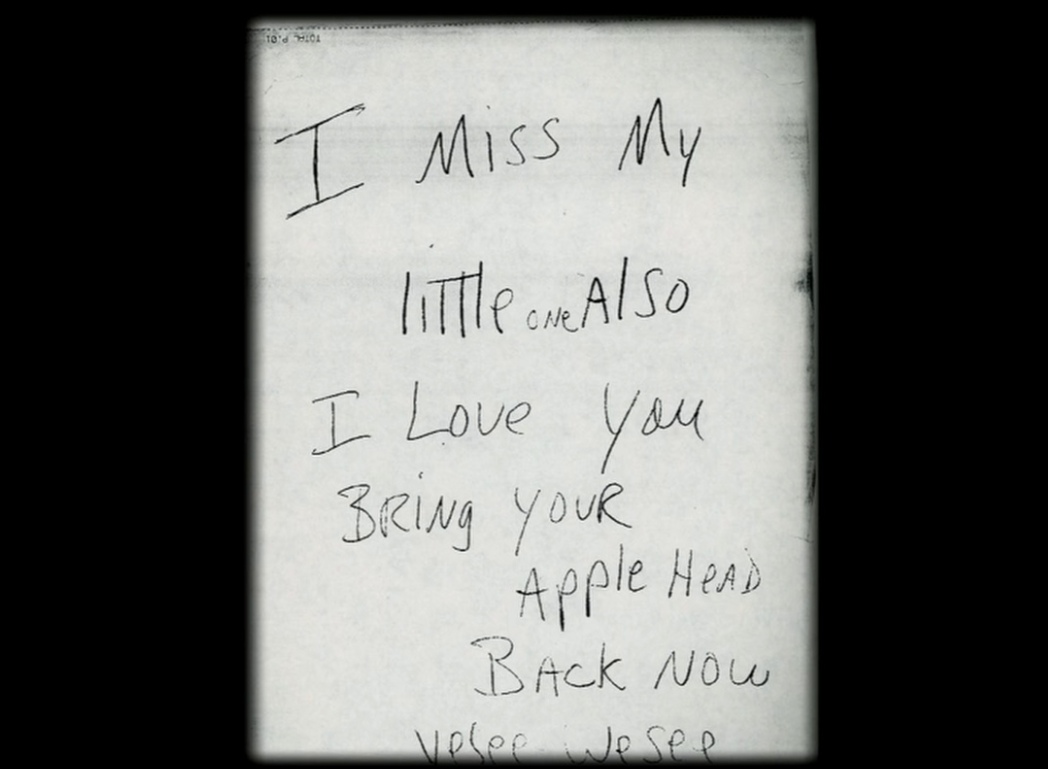 TOTAL P.01
I Miss My
little one Also
I Love you
Bring your
Apple Head
Back Now